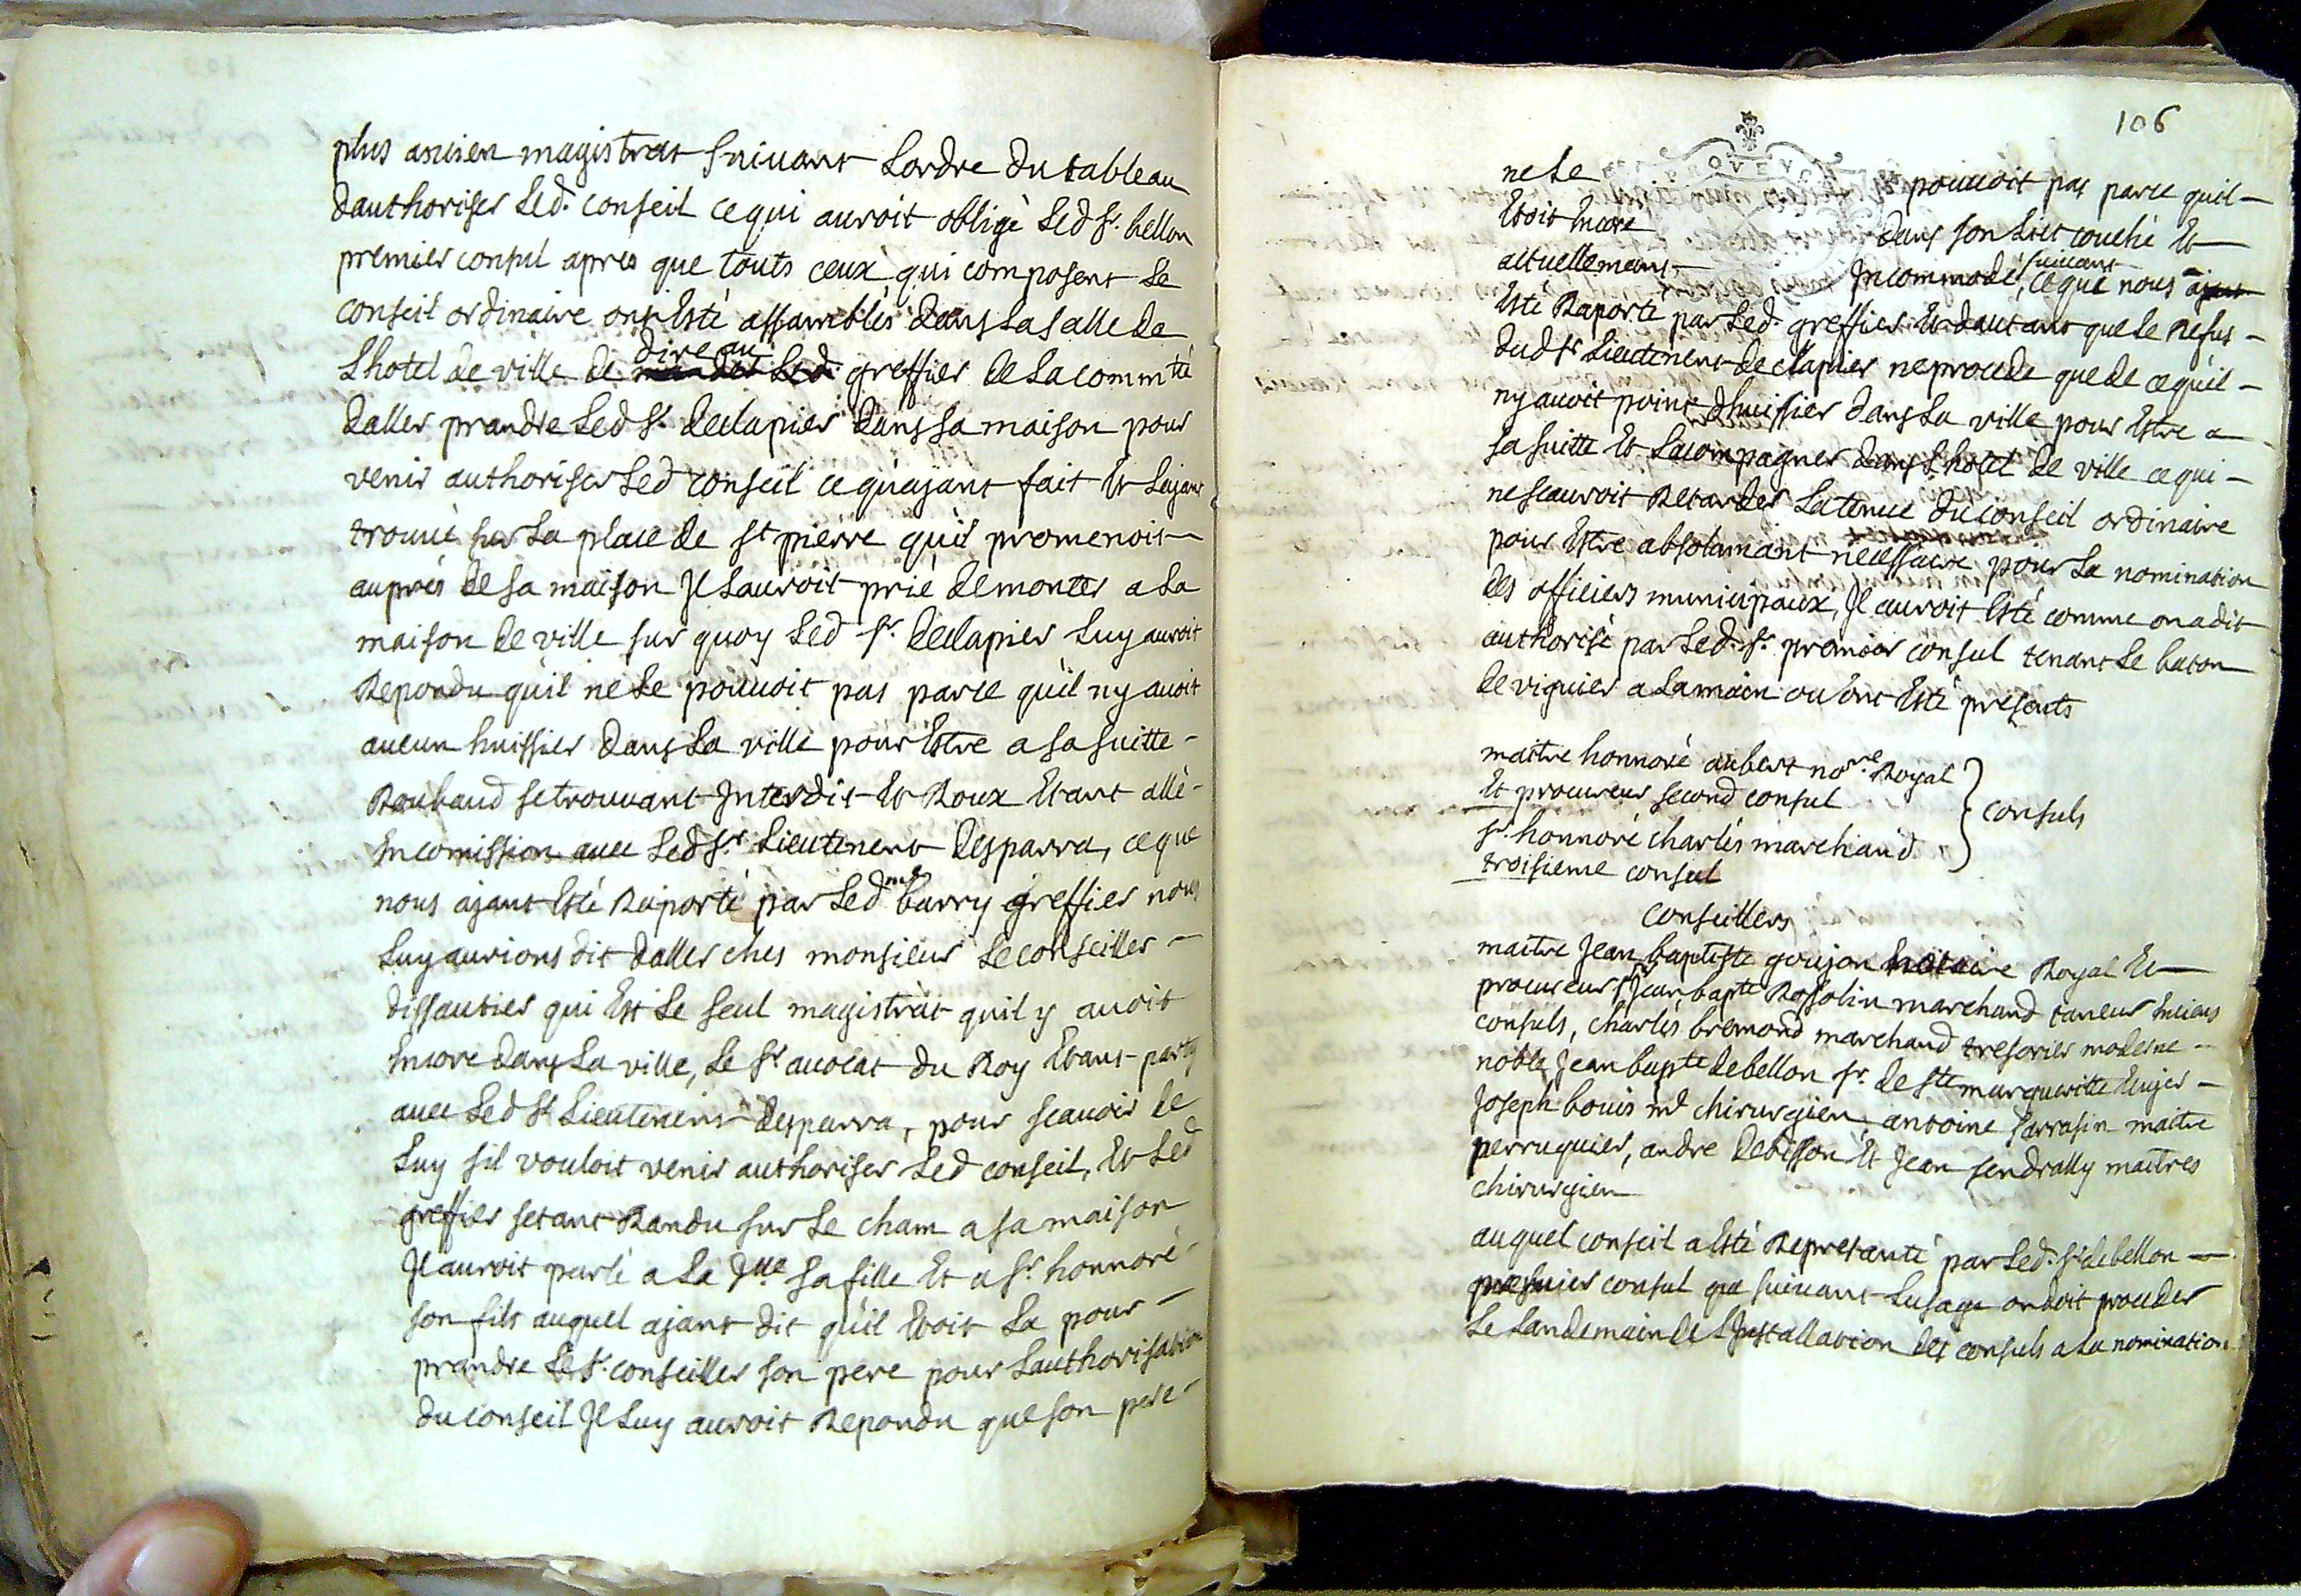 plus ansien magistrat suivant Lordre du tableau
dauthoriser Led. conseil ce qui auroit obligé Led sr. bellon
premier consul apres que touts ceux qui composent Le
conseil ordinaire ont Esté assamblés dans La salle de
Lhotel de ville de dire au greffier de La commté
daller prandre Led sr. declapier dans sa maison pour
venir authoriser Led conseil ce qu'ajant fait Et Lajant
trouvé sur La place de st pierre qu'il promenoit
aupres de sa maison Jl Lauroit prié de monter a La
maison de ville sur quoy Led sr. declapier Luy auroit
Repondu qu'il ne Le pouuoit pas parce qu'il ny auoit
aucun huissier dans La ville pour Estre a sa suitte
Roubaud se trouvant Jnterdit Et Roux Etant allé
En comission auec Led sr. Lieutenent desparra, ce que
nous ajant Esté Raporté par Led me barry greffier nous
Luy aurions dit daller ches monsieur Le conseiller
dissautier qui Est Le seul magistrat quil y auoit
Encore dans La ville, Le sr auocat du Roy Etant party
auec Led sr Lieutenent desparra, pour scauoir de
Luy sil vouloit venir authoriser Led conseil, Et Led
greffier setant Randu sur Le cham a sa maison
Jl auroit parlé a La Jlle sa fille Et a sr. honnoré
son fils auquel ajant dit qu'il Etoit La pour
prandre Le sr. conseiller son pere pour Lauthorisation
du conseil Jl Luy auroit Repondu que son pere
106
ne Le pouuoit pas parce quil
Etoit Encore dans son Lict couché Et
actuellement Jncommodé, suiuant ce que nous ajant
Esté Raporté par Led. greffier Et dautant que Le Refus
dud sr Lieutenent declapier ne procede que de ce quil
ny auoit point dhuissier dans La ville pour Estre a
sa suitte Et Lacompagner dans Lhotel de ville ce qui
ne scauroit Retarder La tenue du conseil ordinaire
pour Estre absolumant necessaire pour La nomination
des officiers municipaux, Jl auroit Esté comme on a dit
authorisé par Led. sr. premier consul tenant Le baton
de viguier a La main ou ont Esté presents
maitre honnoré aubert nore. Royal
Et procureur second consul
sr. honnoré charles marchand
troisieme consul
consuls
conseillers
maitre Jean baptiste goujon notaire Royal Et
procureur sr Jean bapte Rossolin marchand taneur Enciens
consuls, charles bremond marchand tresorier moderne
noble Jean bapte debellon sr. de ste marguerite Enjer
Joseph bouis me chirurgien, antoine sarrasin maitre
perruquier, andre debesson Et Jean sendrally maitres
chirurgien
auquel conseil a Esté Represanté par Led. sr debellon
premier consul que suiuant Lusage on doit proceder
Le Landemain de LJnstallation des consuls a La nomination